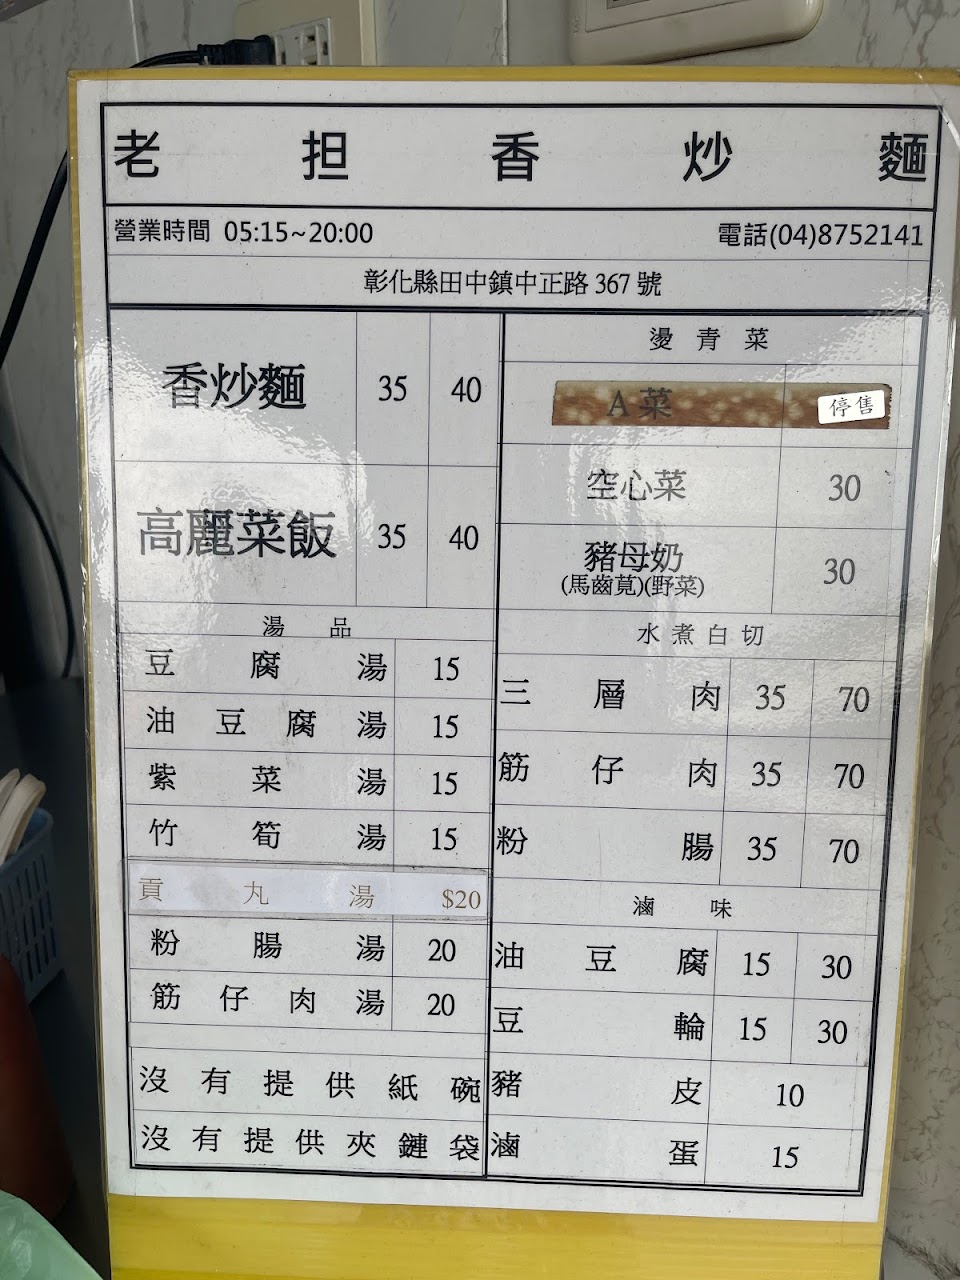 老担香炒麵
營業時間 05:15~20:00 電話(04)8752141
彰化縣田中鎮中正路 367 號
香炒麵 35 40
高麗菜飯 35 40
湯品
豆腐湯 15
油豆腐湯 15
紫菜湯 15
竹筍湯 15
貢丸湯 $20
粉腸湯 20
筋仔肉湯 20
沒有提供紙碗
沒有提供夾鏈袋
燙青菜
A菜 停售
空心菜 30
豬母奶 30
(馬齒莧)(野菜)
水煮白切
三層肉 35 70
筋仔肉 35 70
粉腸 35 70
滷味
油豆腐 15 30
豆輪 15 30
豬皮 10
滷蛋 15